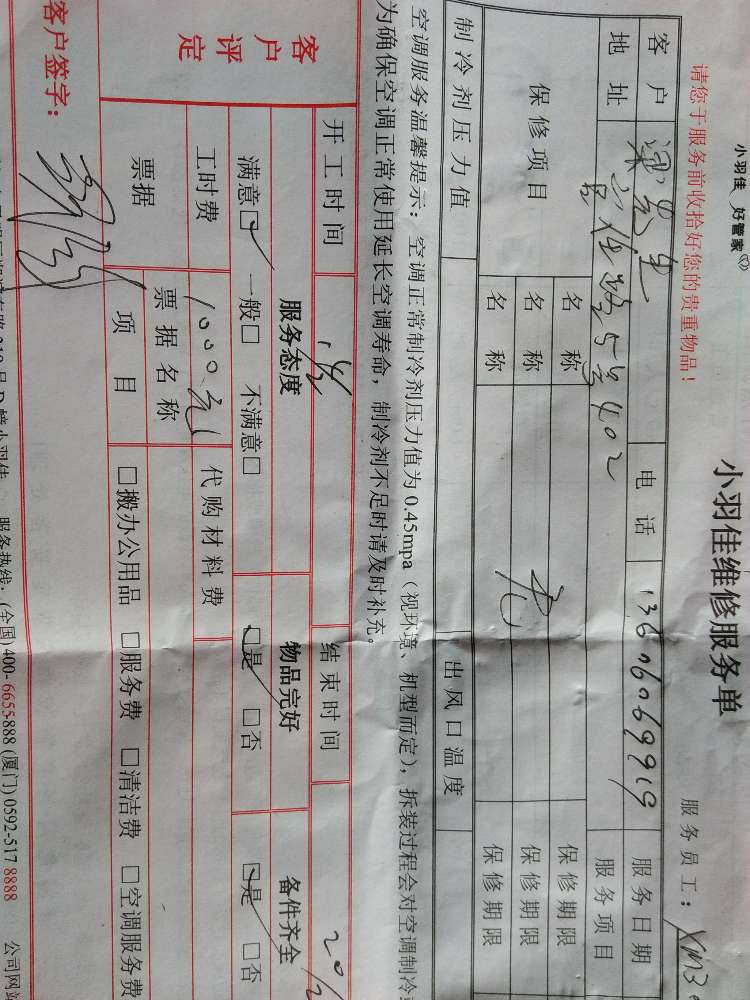 小羽佳 好管家
小羽佳维修服务单
请您于服务前收拾好您的贵重物品！
服务员工：XM3
客户 电话 13606069919 服务日期
地址 5号402 服务项目
保修项目 名称 保修期限
名称 无 保修期限
名称 保修期限
制冷剂压力值 出风口温度
空调服务温馨提示： 空调正常制冷剂压力值为0.45mpa（视环境、机型而定），拆装过程会对空调制冷
为确保空调正常使用延长空调寿命，制冷剂不足时请及时补充。
开工时间 结束时间 20
客户评定 服务态度 物品完好 备件齐全
满意☑ 一般□ 不满意□ ☑是 □否 ☑是 □否
工时费 1000元 代购材料费
票据 票据名称
项目 □搬办公用品 □服务费 □清洁费 □空调服务费
客户签字：
小羽佳 服务热线：(全国)400-6655-888 (厦门)0592-517 8888 公司网站